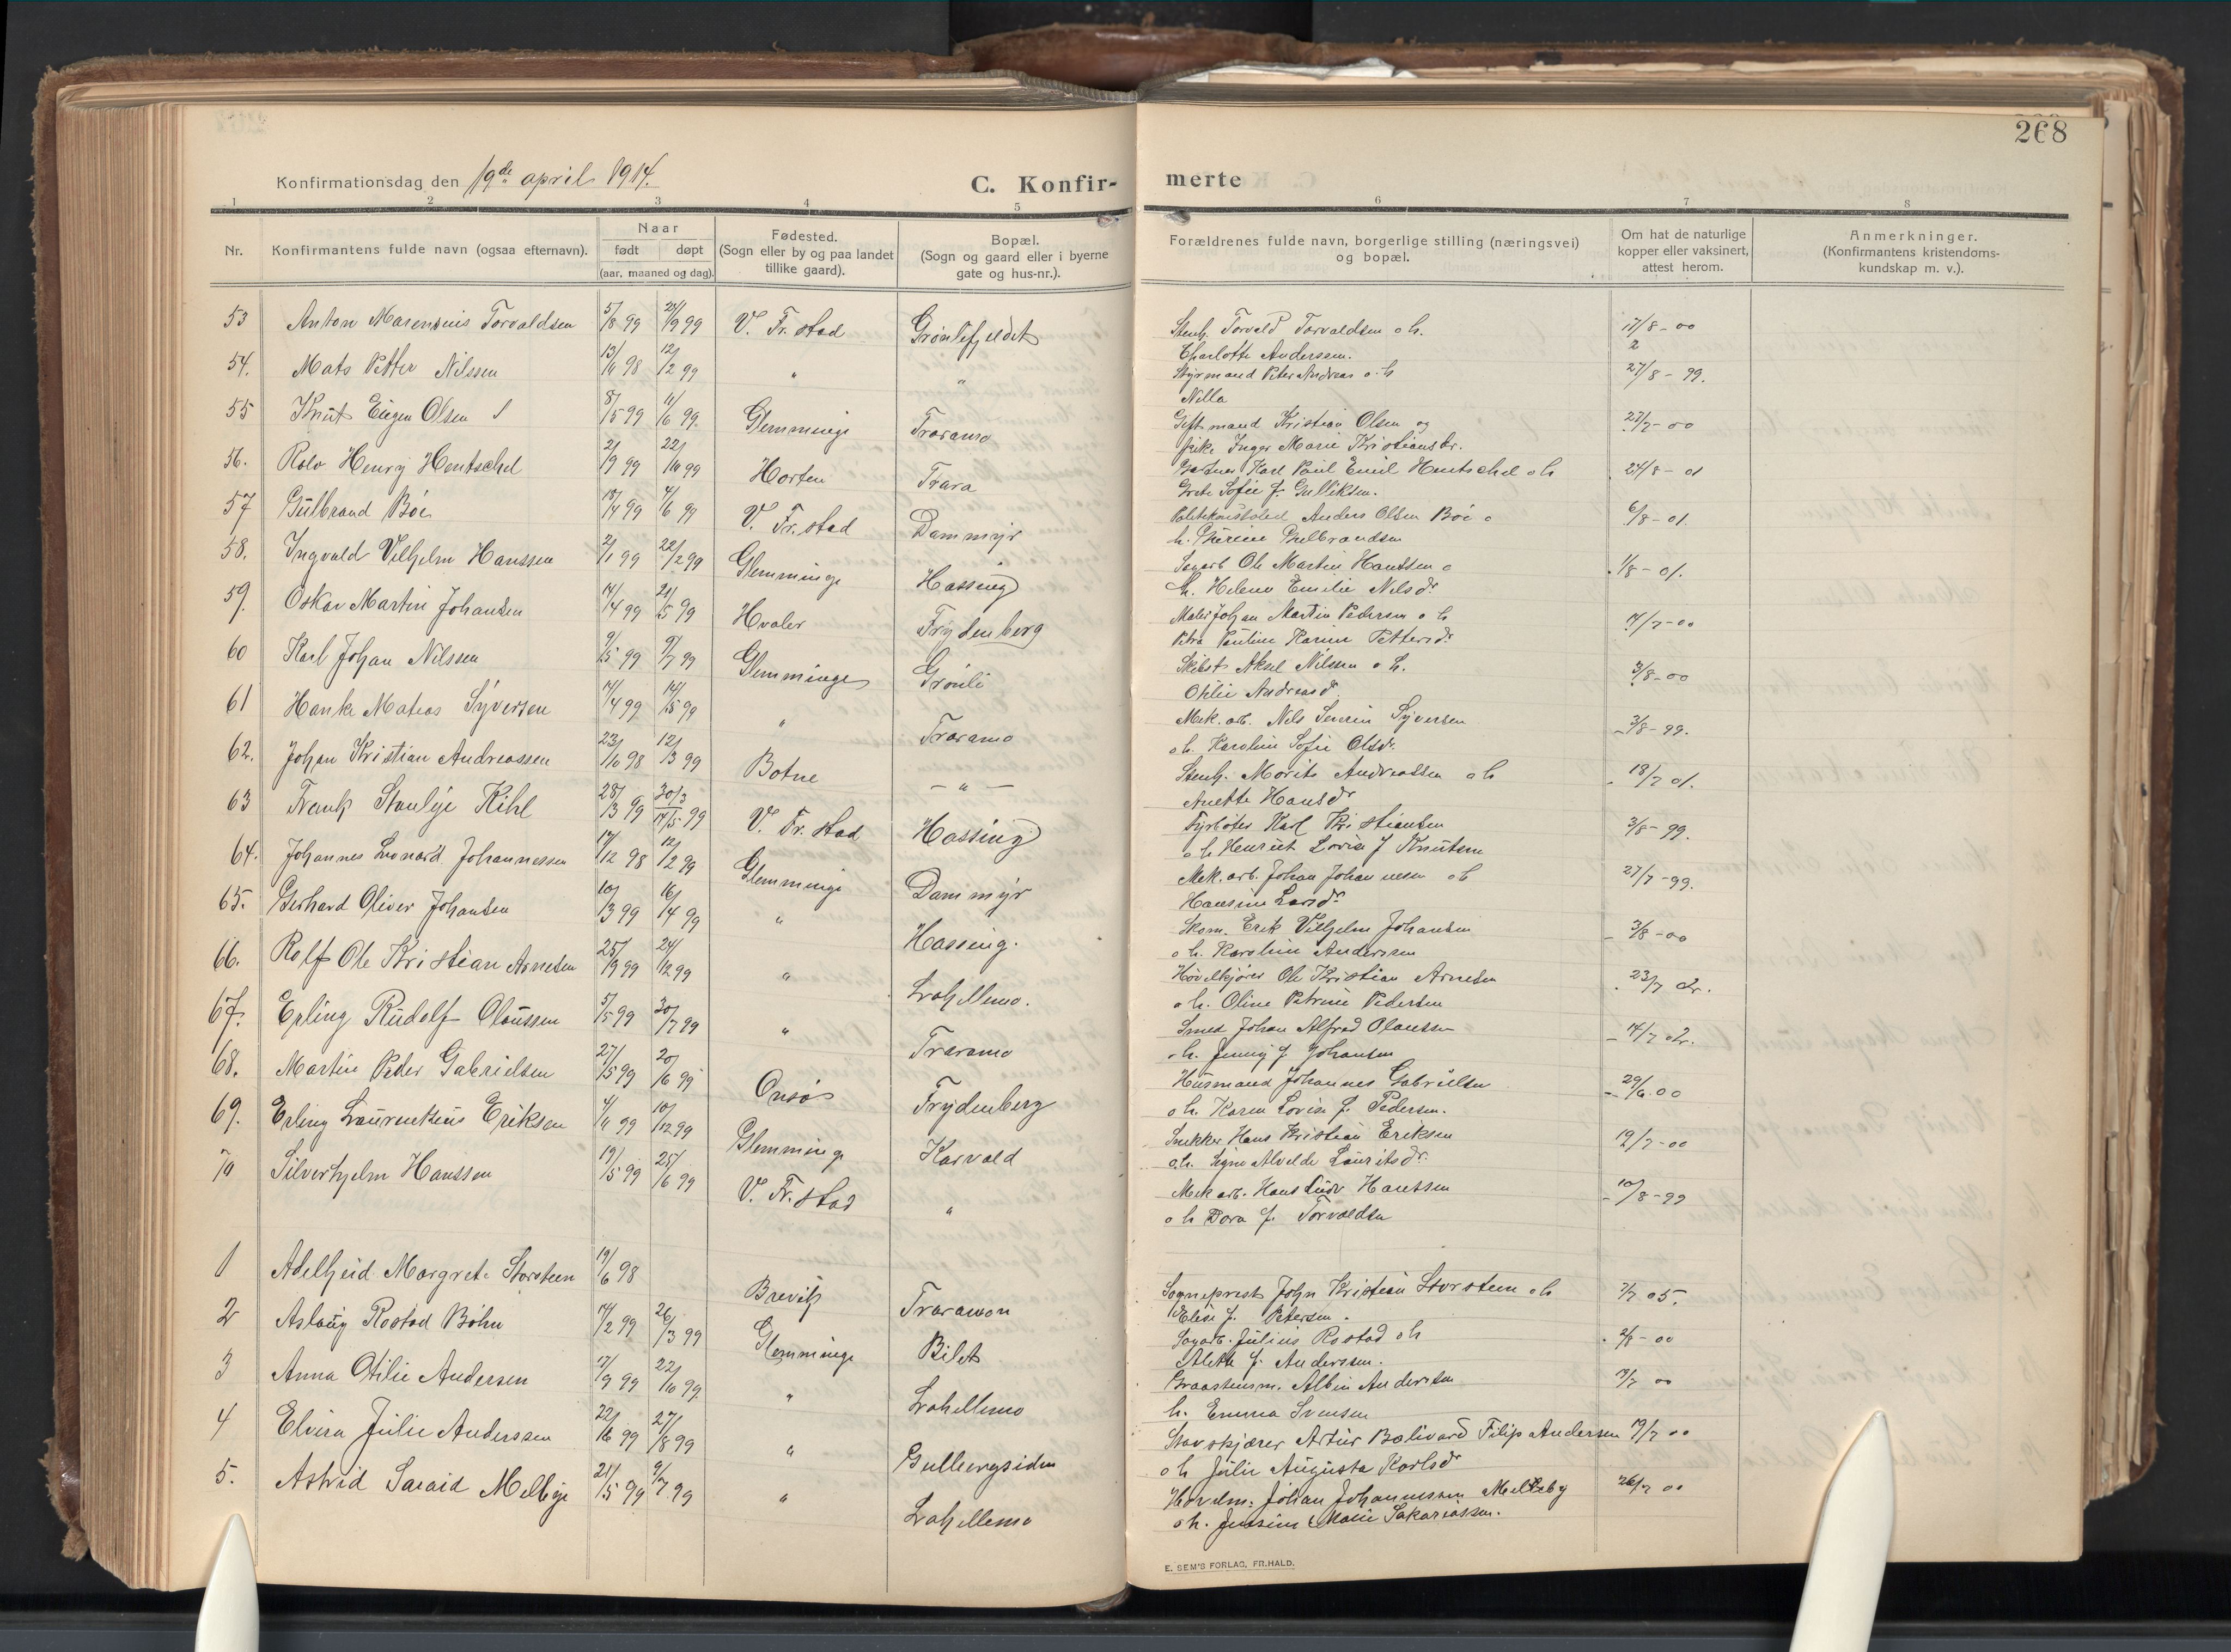 268
Konfirmationsdag den 19de april 1914.
C. Konfir-
merte
1 2 3 4 5 6 7 8
Nr.
Konfirmantens fulde navn (ogsaa efternavn).
Naar
født døpt
(aar, maaned og dag).
Fødested.
(Sogn eller by og paa landet
tillike gaard).
Bopæl.
(Sogn og gaard eller i byerne
gate og hus-nr.).
Forældrenes fulde navn, borgerlige stilling (næringsvei)
og bopæl.
Om hat de naturlige
kopper eller vaksinert,
attest herom.
Anmerkninger.
(Konfirmantens kristendoms-
kundskap m. v.).
53 Anton Marensius Torvaldsen 5/8 99 24/9 99 V. Fr. stad Grönlifjeldet Stenh. Torvald Torvaldsen o h. 17/8 - 00
Charlotte Anderssen. 2
54. Mats Petter Nilssen 12/2 99 " " Styrmand Peter Andreas o. h 27/8 - 99.
Nilla
55 Knut Eugen Olsen 8/5 99 11/6 99. Glemminge Traramo Gift mand Kristian Olsen og 27/7 - 00
pike Inger Marie Kristiansdr.
56. Rolv Henry Hentschel 2/9 99 22/10 99 Horten Trara Gartner Karl Paul Emil Hentschel o h 24/8 - 01
Grete Sofie f. Gulliksen.
57 Gulbrand Böe 18/4 99 4/6 99 V. Fr. stad Dammyr Politikonstabel Anders Olsen Böe o 6/8 - 01.
h. Gulbrandsen
58. Ingvald Vilhjelm Hanssen 2/1 99 22/2 99 Glemminge Hassing Sagarb Ole Martin Hanssen o 1/8 - 01.
h. Helene Emilie Nilsdr
59. Oskar Martin Johansen 14/4 99 21/5 99 Hvaler Frydenberg Maler Johan Martin Pedersen o h 14/7 - 00
Petra Pauline Karine Pettersdr
60 Karl Johan Nilssen 9/5 99 9/7 99 Glemminge Grönli Skibst. Aksel Nilssen o h. 3/8 - 00
Otilie Andreasd.
61 Hanke Matias Syversen 14/4 99 14/5 99 " Traramo Mek. arb. Nils Severin Syversen 3/8 - 99.
o h. Karoline Sofie Olsdr.
62. Johan Kristian Andreassen 23/10 98 12/3 99 Botne — " — Stenh. Morits Andreassen o h 18/7 01.
Anette Hansdr
63 Frank Stanley Kihl 28/3 99 30/3 14/5 99 V. Fr. stad Hassing Fyrböter Karl Kristiansen 3/8 - 99.
o h Henriet Lovise f Knutsen
64. Johannes Leonard Johannessen 17/12 98 12/2 99 Glemminge Dammyr Mek. arb. Johan Johannesen o h 27/7 - 99.
Hansine Larsdr
65. Gerhard Oliver Johansen 10/3 99 16/4 99 " Hassing. Skom. Erik Vilhjelm Johansen 3/8 - 00
o h. Karoline Anderssen
66. Rolf Ole Kristian Arnesen 25/9 99 24/12 99 " Lahellemo. Hövelkjörer Ole Kristian Arnesen 23/7 02.
o h. Oline Petrine Pedersen
67. Erling Rudolf Olaussen 5/5 99 30/7 99 " Traramo Smed Johan Alfred Olaussen 14/7 02.
o h. Jenny f. Johansen
68. Martin Peder Gabrielsen 27/5 99 20/6 99 Onsö Frydenberg Husmand Johannes Gabrielsen 29/6 00
o h. Karen Lovise f. Pedersen.
69. Erling Laurentius Eriksen 4/11 99 10/12 99 Glemminge Karvald Snekker Hans Kristian Eriksen 19/7 - 00
o. h. Signe Alvelde Lauritsdr.
70 Silverhjelm Hanssen 19/5 99 25/6 99 V. Fr. stad " Mek arb. Hans Ludv Hanssen 10/8 - 99
o h Dora f. Torvaldsen
1 Adelheid Margrete Storsteen 19/6 98 Brevik Traramon Sogneprest John Kristian Storsteen o h 2/7 05.
Elise f. Petersen.
2 Aslaug Rostad Böhn 14/2 99 26/3 99 Glemminge Bilet Sagarb. Julius Rostad o h 2/8 - 00
Alette f. Anderssen.
3 Anna Otilie Andersen 17/9 99 22/10 99. " Lahellemo Graastensm. Albin Andersen 00
h. Emma Svensen
4 Elvira Julie Anderssen 22/6 99 27/8 99 " Gullbergsiden Stavskjærer Artur Bolivard Filip Andersen 19/7 00
o h Julie Augusta Karlsdr
5. Astrid Saraid Melbye 21/5 99 9/7 99 " Lahellemo Hövelm. Johan Johannessen Melleby 26/7 00
o h. Jensine Marie Sakariassen.
E. SEM'S FORLAG, FR.HALD.